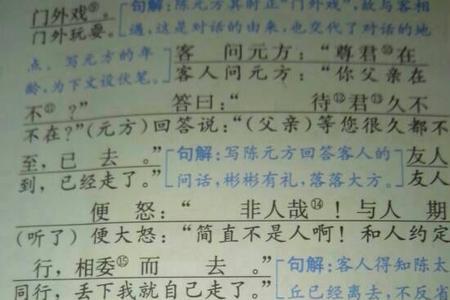 门外戏⑨。[句解：陈元方其时正“门外戏”，故与客相
门外玩耍。遇，这是对话的由来，也交代了对话的地
点。写元方的年 客 问元方：“尊君⑩在
龄，为下文设伏笔。] 客人问元方：“你父亲在
不⑪？” 答曰：“ 待⑫君⑬久不
不在？”(元方)回答说：“(父亲)等您很久都不
至，已 去 。”[句解：写陈元方回答客人的 友人
到，已经走了。”问话，彬彬有礼，落落大方。] 友人
便 怒：“ 非人哉⑭！与人 期
(听了)便大怒：“简直不是人啊！和人约定
行，相委⑮而 去 。”[句解：客人得知陈太
同行，丢下我就自己走了。”丘已经离去，不反省